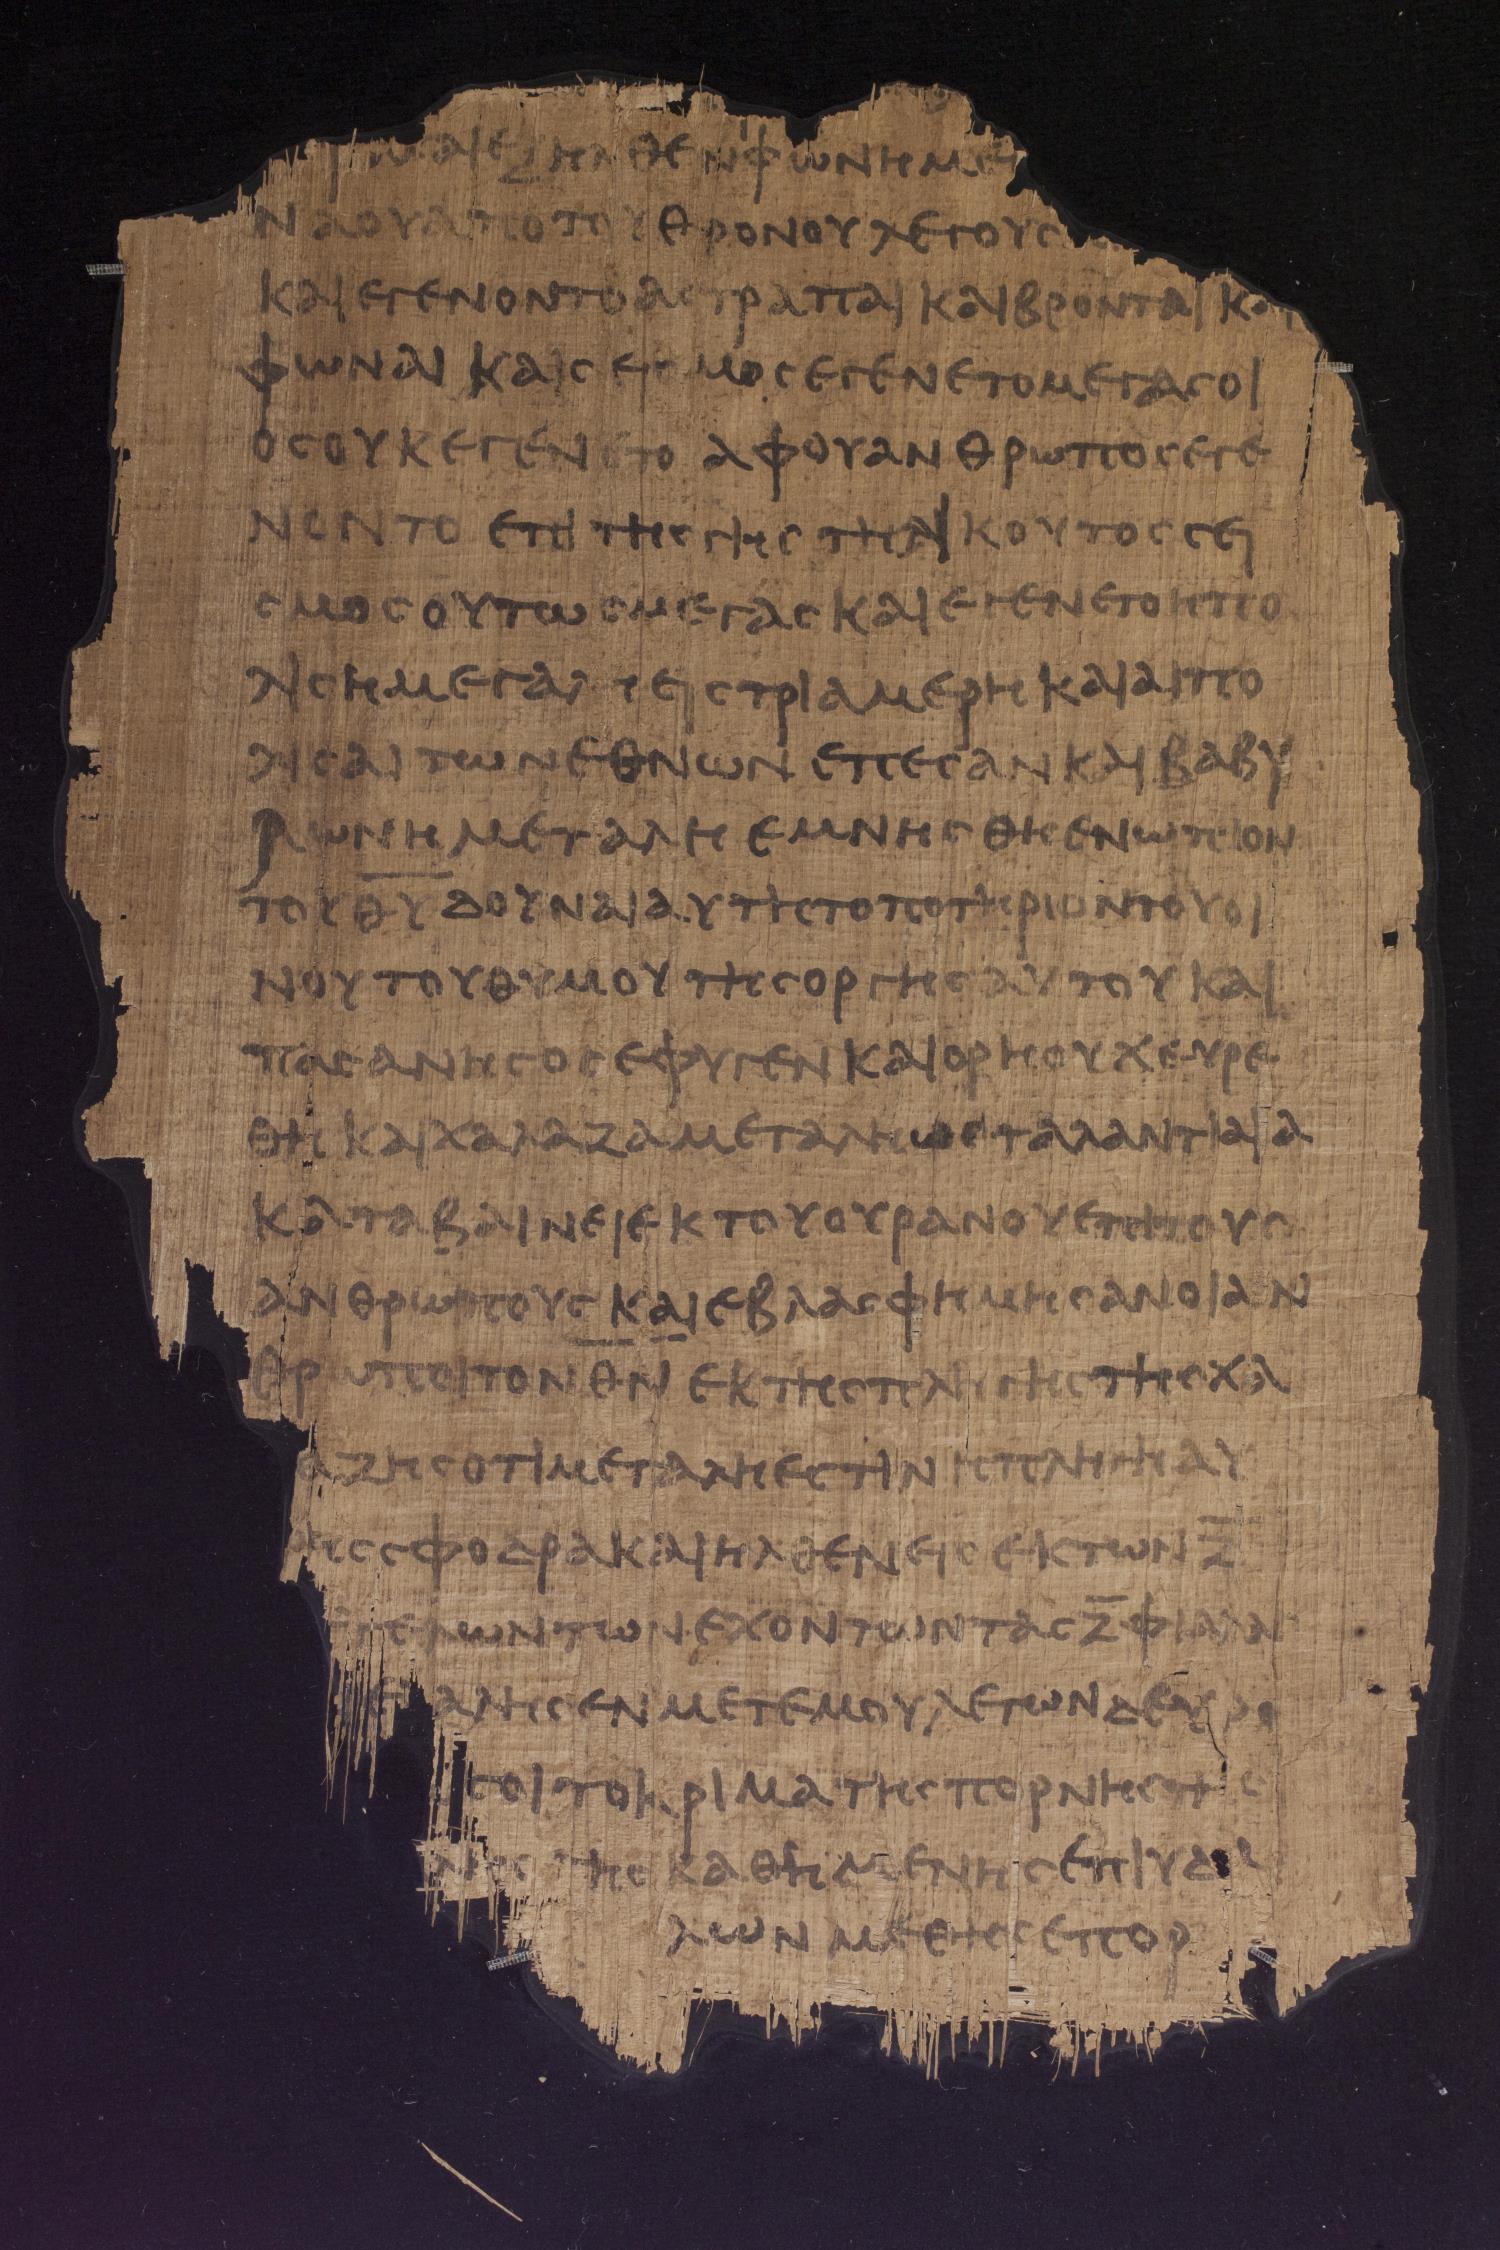 και εξηλθεν φωνη με
ναου απο του θρονου λεγους
και εγενοντο αστραπαι και βρονται και
φωναι και σεισμος εγενετο μεγας οι
ος ουκ εγενετο αφ ου ανθρωπος εγε
νοντο επι της γης τηλικουτος σει
σμος ουτως μεγας και εγενετο η πο
λις η μεγαλ εις τρια μερη και αι πο
λις αι των εθνων επεσαν και βαβυ
λων η μεγαλη εμνησθη ενωπιον
του θ̅υ̅ δουναι αυτη το ποτηριον του οι
νου του θυμου της οργης αυτου και
πασα νησος εφυγεν και ορη ουχ ευρε
θη και χαλαζα μεγαλη ως ταλαντιαια
καταβαινει εκ του ουρανου επι τους
ανθρωπους και εβλασφημησαν οι αν
θρωποι τον θ̅ν̅ εκ της πληγης της χαλ
αζης οτι μεγαλη εστιν η πληγη αυ
της σφοδρα και ηλθεν εις εκ των ζ̅
αγγελων των εχοντων τας ζ̅ φιαλα
ελαλησεν μετ εμου λεγων δευρο
σοι το κριμα της πορνης της
λης της καθημενης επι υδα
λων μεθ ης επορ